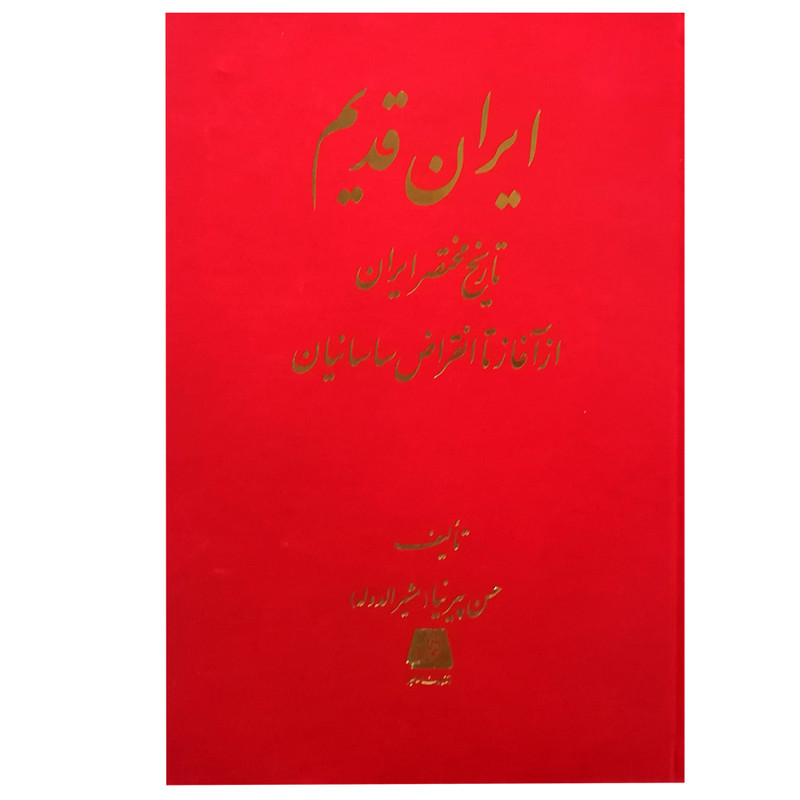 ایران قدیم
تاریخ مختصر ایران
از آغاز تا انقراض ساسانیان
تألیف
حسن پیرنیا (مشیرالدوله)